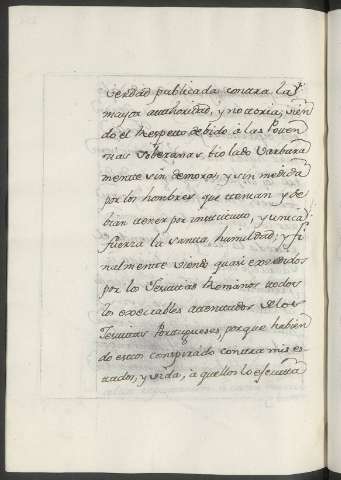 verdad publicada contra la
mayor authoridad, y notoria; sien
do el Respetto debido a las Poten
cias Soberanas, biolado barbara
mente sin demora, y sin medida
por los hombres que tenian y de
bian tener por instituto, y unica
fuerza la santa humildad; y fi
nalmente siendo quasi excedidos
por los Jesuitas Romanos todos
los execrables attentados de los
Jesuitas Portugueses, porque habien
do estos conspirado contra mis es
tados, y vida, a quellos lo